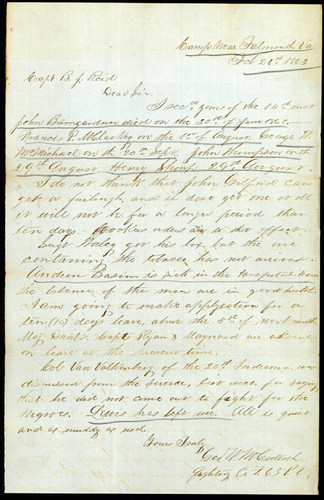 Camp Near Falmouth Va
Feb 21st 1863
Capt B. J. Reid
Dear Sir
I rec'd yours of the 14th inst
John Bumgardner died on the 30th of
Francis P. on the 1st of August George W.
McMichael on the 20th Sept John Thompson on the
29th August Henry 29th August
I do not think that John Gilford can
get a furlough, and if does get one at all
it will not be for a longer period than
ten days. Hookers orders are to die effect.
Sergt got his box, but the one
containing the tobacco has not arrived.
Andrew is sick in the Hospital
the balance of the men are in good health
I am going to make application for a
ten (10) days leave, about the 5th of next month
Maj Danks, Capts Ryan & Maynard are absent
on leave at the present time.
Col Van Valkenburg of the 20th Indiana was
dismissed from the service, last week for saying
that he did not come out to fight for the
Negroes. Lewis has left me. All is quiet
and as muddy as usual.
Yours Truly
Geo W McCullough
Co F. 63 P.V.